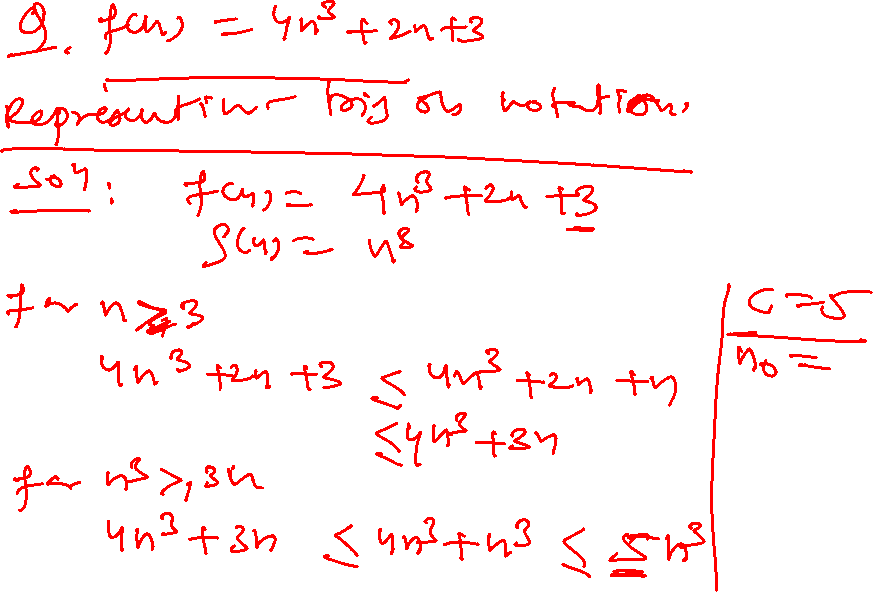 Q. f(n) = 4n³ + 2n + 3
Represent in big oh notation.
Sol: f(n) = 4n³ + 2n + 3
g(n) = n³
for n ≥ 3
4n³ + 2n + 3 ≤ 4n³ + 2n + n
≤ 4n³ + 3n
for n³ ≥ 3n
4n³ + 3n ≤ 4n³ + n³ ≤ 5n³
C = 5
n₀ =